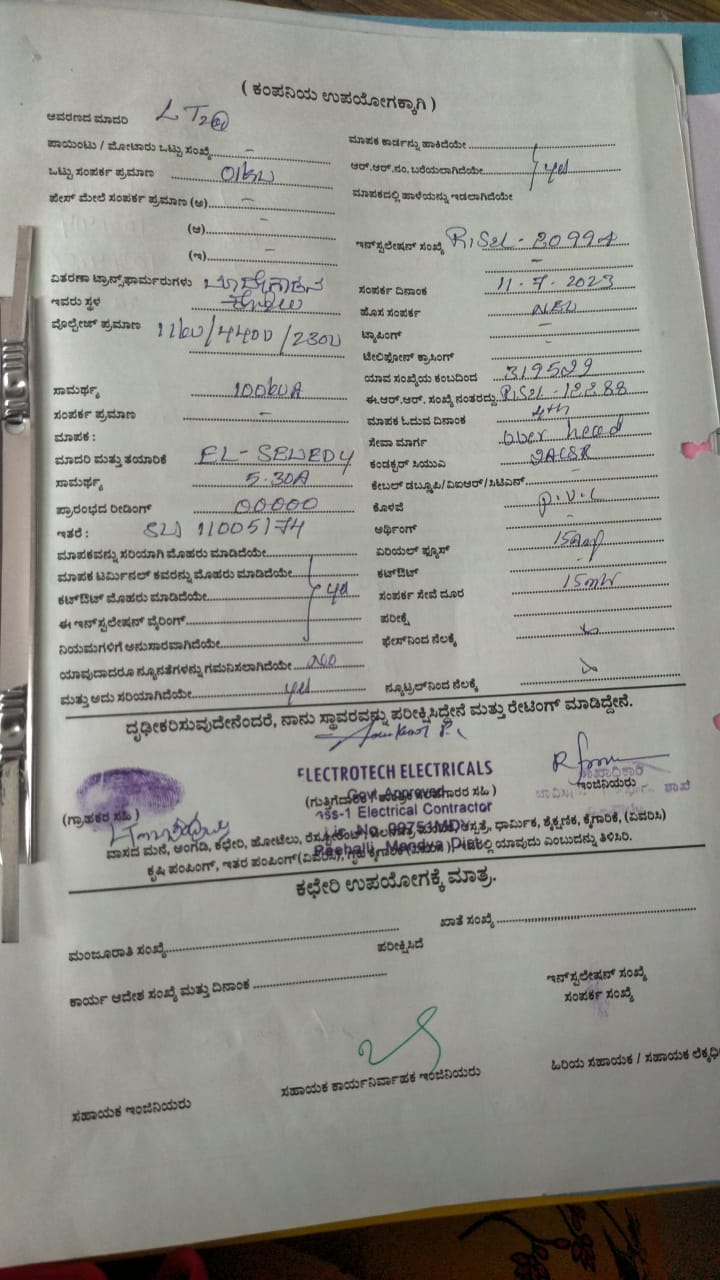 ( ಕಂಪನಿಯ ಉಪಯೋಗಕ್ಕಾಗಿ )
ಆವರಣದ ಮಾದರಿ LT2(a)
ಪಾಯಿಂಟು / ಮೋಟಾರು ಒಟ್ಟು ಸಂಖ್ಯೆ -
ಒಟ್ಟು ಸಂಪರ್ಕ ಪ್ರಮಾಣ 01kW
ಫೇಸ್ ಮೇಲೆ ಸಂಪರ್ಕ ಪ್ರಮಾಣ (ಅ) -
(ಆ) -
(ಇ) -
ವಿತರಣಾ ಟ್ರಾನ್ಸ್‌ಫಾರ್ಮರುಗಳು
ಇವರು ಸ್ಥಳ
ವೊಲ್ಟೇಜ್ ಪ್ರಮಾಣ 11kV/440V/230V
ಸಾಮರ್ಥ್ಯ 100kVA
ಸಂಪರ್ಕ ಪ್ರಮಾಣ -
ಮಾಪಕ :
ಮಾದರಿ ಮತ್ತು ತಯಾರಿಕೆ EL-SEWEDY
ಸಾಮರ್ಥ್ಯ 5-30A
ಪ್ರಾರಂಭದ ರೀಡಿಂಗ್ 00000
ಇತರೆ : 11005174
ಮಾಪಕವನ್ನು ಸರಿಯಾಗಿ ಮೊಹರು ಮಾಡಿದೆಯೇ
ಮಾಪಕ ಟರ್ಮಿನಲ್ ಕವರನ್ನು ಮೊಹರು ಮಾಡಿದೆಯೇ
ಕಟ್‌ಔಟ್ ಮೊಹರು ಮಾಡಿದೆಯೇ yes
ಈ ಇನ್‌ಸ್ಪಲೇಷನ್ ವೈರಿಂಗ್
ನಿಯಮಗಳಿಗೆ ಅನುಸಾರವಾಗಿದೆಯೇ
ಯಾವುದಾದರೂ ನ್ಯೂನತೆಗಳನ್ನು ಗಮನಿಸಲಾಗಿದೆಯೇ NO
ಮತ್ತು ಅದು ಸರಿಯಾಗಿದೆಯೇ yes
ಮಾಪಕ ಕಾರ್ಡನ್ನು ಹಾಕಿದೆಯೇ
ಆರ್.ಆರ್.ನಂ. ಬರೆಯಲಾಗಿದೆಯೇ yes
ಮಾಪಕದಲ್ಲಿ ಹಾಳೆಯನ್ನು ಇಡಲಾಗಿದೆಯೇ
ಇನ್‌ಸ್ಪಲೇಷನ್ ಸಂಖ್ಯೆ RISEL-20994
-
ಸಂಪರ್ಕ ದಿನಾಂಕ 11-7-2023
ಹೊಸ ಸಂಪರ್ಕ NEW
ಟ್ಯಾಪಿಂಗ್ -
ಟೆಲಿಫೋನ್ ಕ್ರಾಸಿಂಗ್ -
ಯಾವ ಸಂಖ್ಯೆಯ ಕಂಬದಿಂದ 319529
ಈ.ಆರ್.ಆರ್. ಸಂಖ್ಯೆ ನಂತರದ್ದು RISEL-18288
ಮಾಪಕ ಓದುವ ದಿನಾಂಕ 4th
ಸೇವಾ ಮಾರ್ಗ Over head
ಕಂಡಕ್ಟರ್ ಸಿಯುಎ 2ACSR
ಕೇಬಲ್ ಡಬ್ಲೂಪಿ/ವಿಐಆರ್/ಸಿಟಿಎನ್
ಕೊಳವೆ P.V.C
ಅರ್ಥಿಂಗ್ -
ಏರಿಯಲ್ ಫ್ಯೂಸ್ 15Amp
ಕಟ್‌ಔಟ್ -
ಸಂಪರ್ಕ ಸೇವೆ ದೂರ 15mtr
ಪರೀಕ್ಷೆ
ಫೇಸ್‌ನಿಂದ ನೆಲಕ್ಕೆ
ನ್ಯೂಟ್ರಲ್‌ನಿಂದ ನೆಲಕ್ಕೆ
ದೃಢೀಕರಿಸುವುದೇನೆಂದರೆ, ನಾನು ಸ್ಥಾವರವನ್ನು ಪರೀಕ್ಷಿಸಿದ್ದೇನೆ ಮತ್ತು ರೇಟಿಂಗ್ ಮಾಡಿದ್ದೇನೆ.
ELECTROTECH ELECTRICALS
Govt Approved
Class-1 Electrical Contractor
(ಗ್ರಾಹಕರ ಸಹಿ)
ಇಂಜಿನಿಯರು
ವಾಸದ ಮನೆ, ಅಂಗಡಿ, ಕಛೇರಿ, ಹೋಟೆಲು, ಧಾರ್ಮಿಕ, ಶೈಕ್ಷಣಿಕ, ಕೈಗಾರಿಕೆ, (ವಿವರಿಸಿ)
ಕೃಷಿ ಪಂಪಿಂಗ್, ಇತರ ಪಂಪಿಂಗ್ (ವಿವರಿಸಿ), ಯಾವುದು ಎಂಬುದನ್ನು ತಿಳಿಸಿರಿ.
ಕಛೇರಿ ಉಪಯೋಗಕ್ಕೆ ಮಾತ್ರ.
ಮಂಜೂರಾತಿ ಸಂಖ್ಯೆ
ಖಾತೆ ಸಂಖ್ಯೆ
ಪರೀಕ್ಷಿಸಿದೆ
ಕಾರ್ಯ ಆದೇಶ ಸಂಖ್ಯೆ ಮತ್ತು ದಿನಾಂಕ
ಇನ್‌ಸ್ಪಲೇಷನ್ ಸಂಖ್ಯೆ
ಸಂಪರ್ಕ ಸಂಖ್ಯೆ
ಸಹಾಯಕ ಇಂಜಿನಿಯರು
ಸಹಾಯಕ ಕಾರ್ಯನಿರ್ವಾಹಕ ಇಂಜಿನಿಯರು
ಹಿರಿಯ ಸಹಾಯಕ / ಸಹಾಯಕ